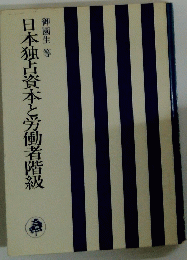 日本独占資本と労働者階級
御園生 等